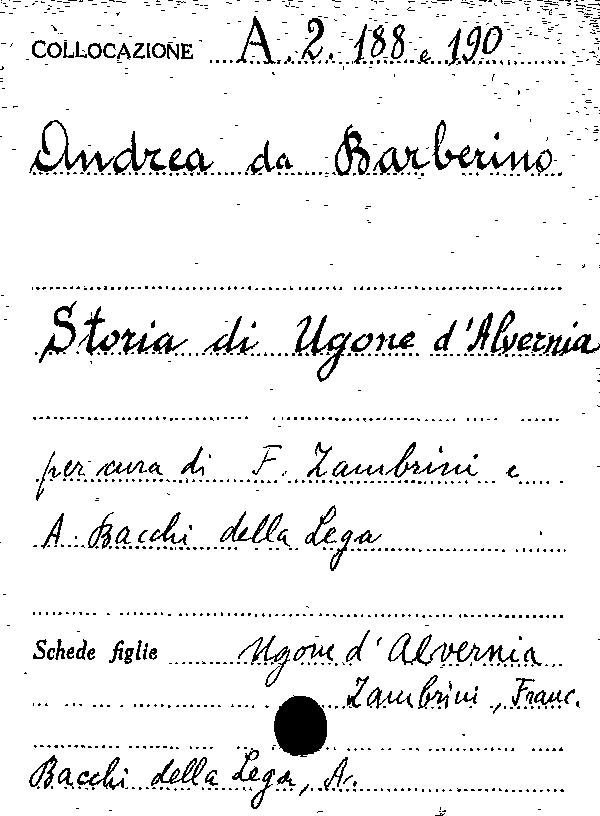 COLLOCAZIONE A. 2. 188 e 190
Andrea da Barberino
Storia di Ugone d'Alvernia
per cura di F. Zambrini e
A. Bacchi della Lega
Schede figlie Ugone d'Alvernia
Zambrini, Franc.
Bacchi della Lega, A.